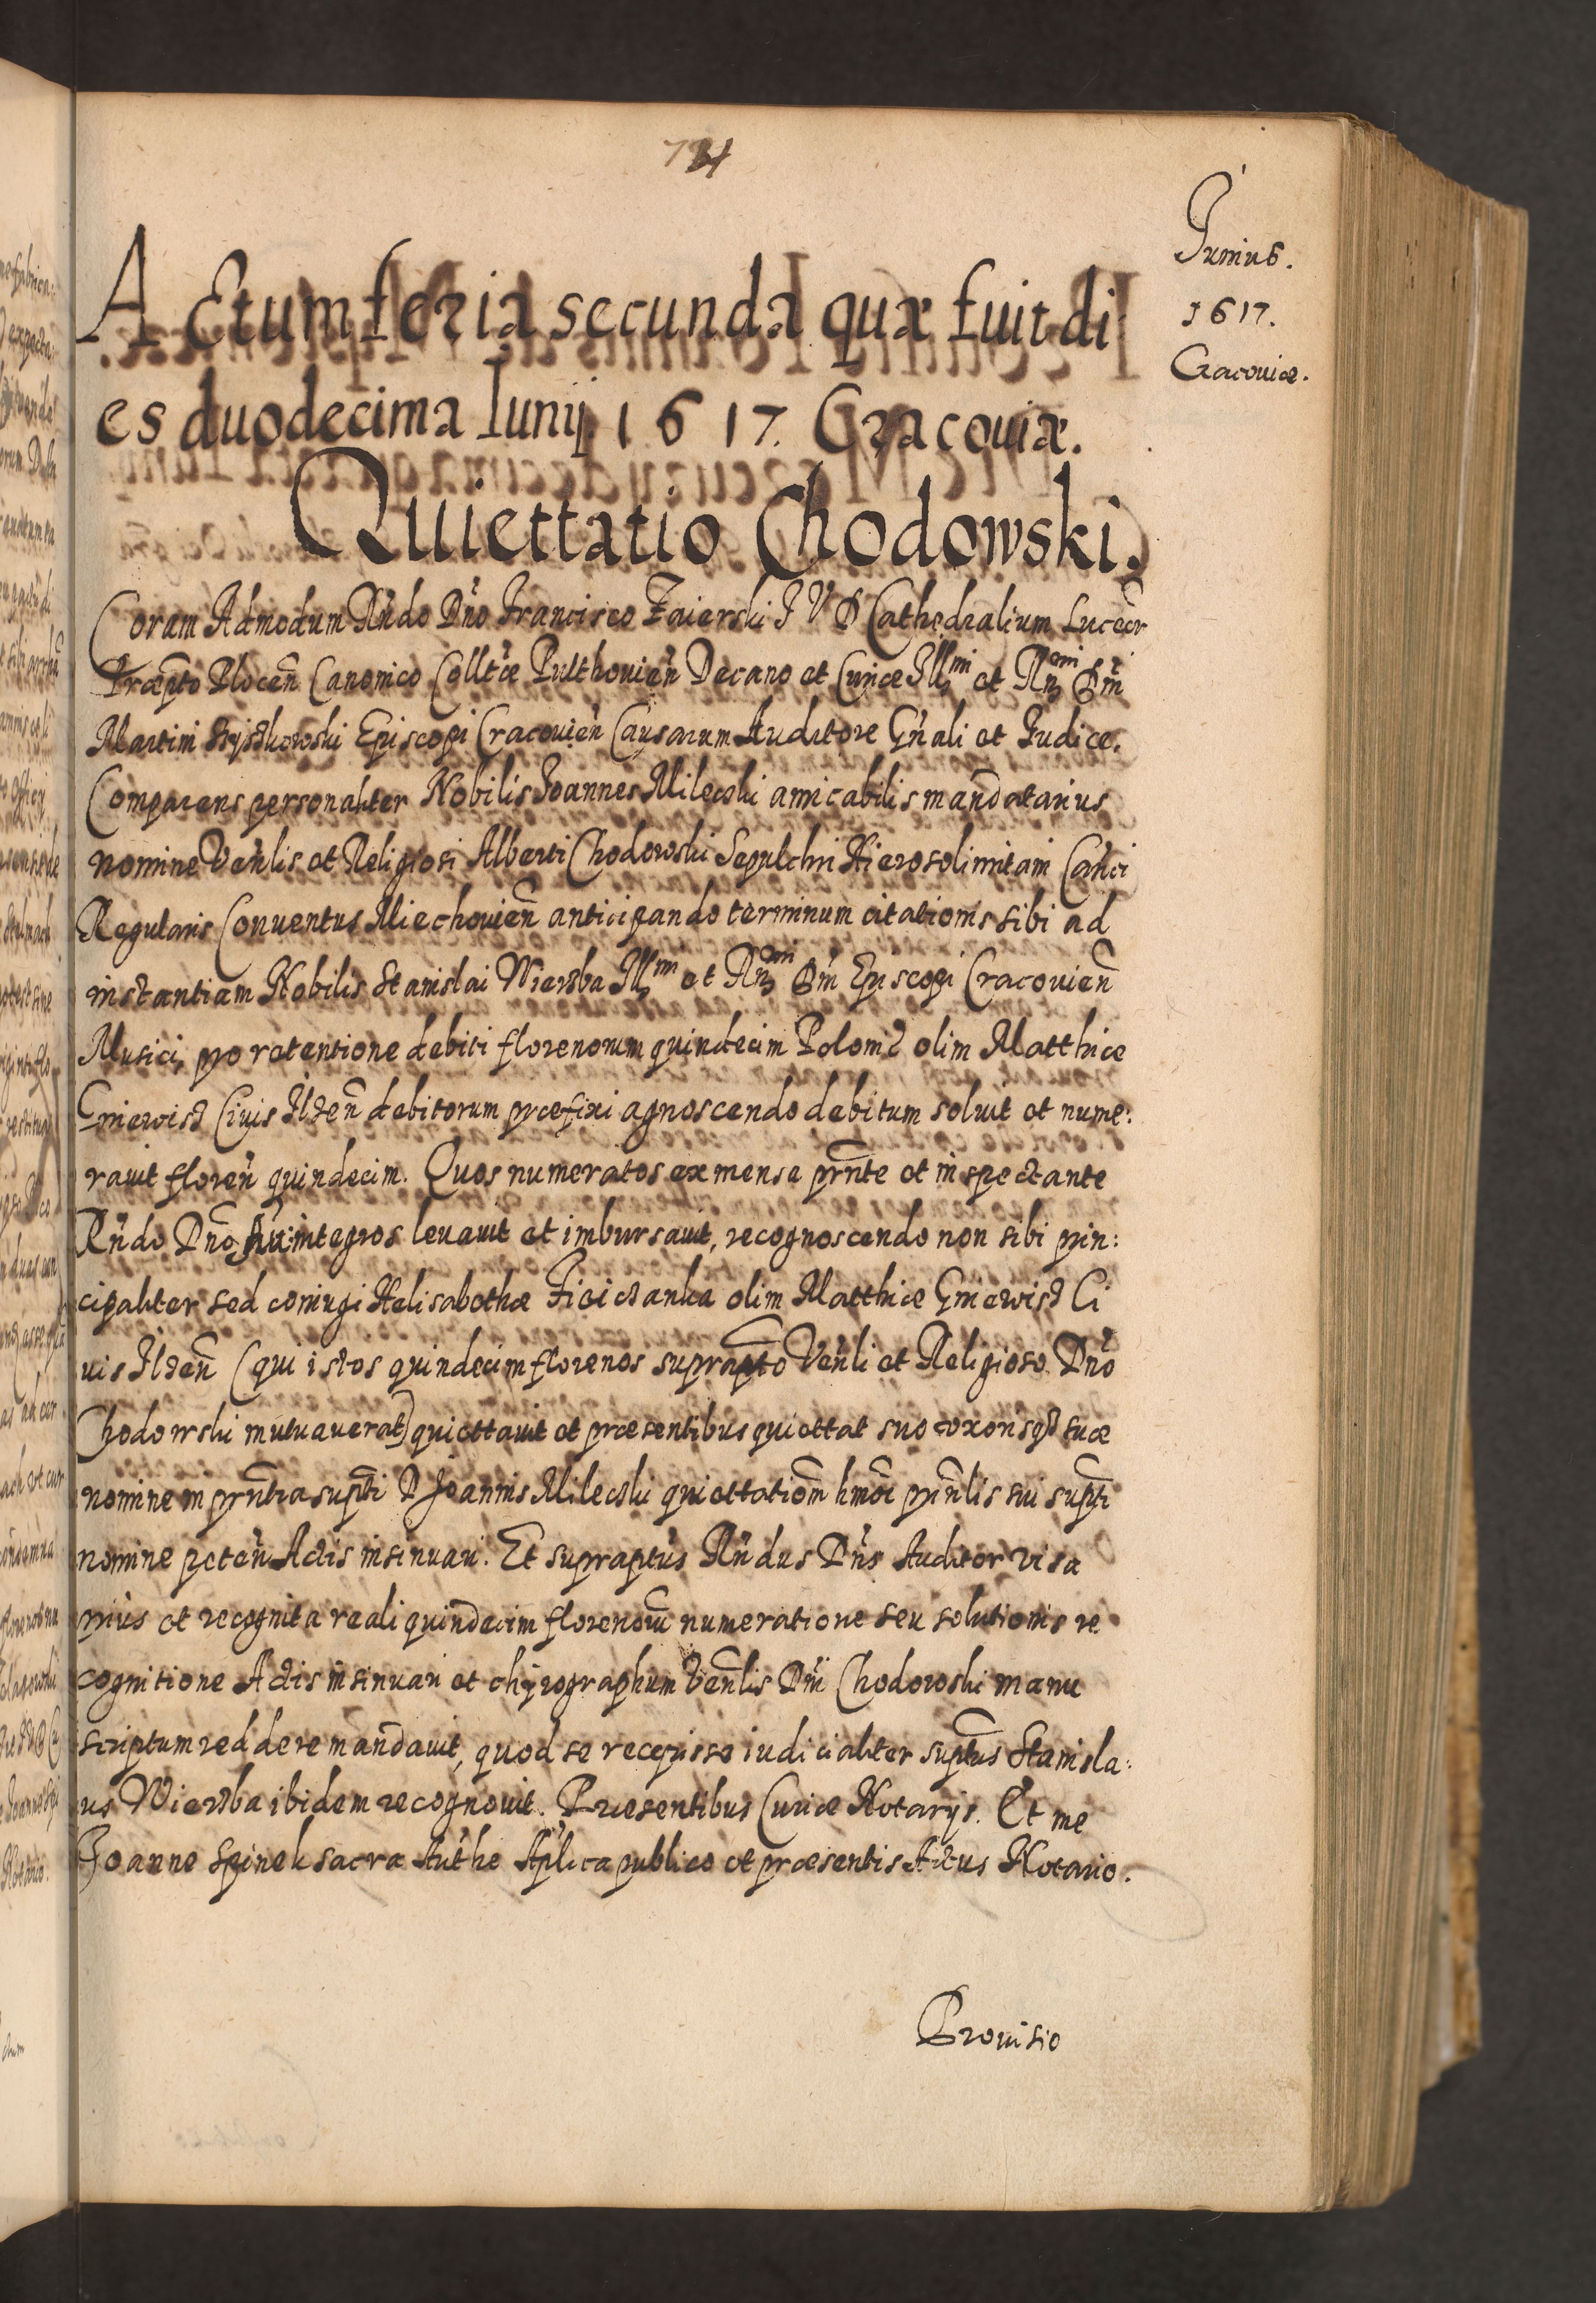 Junius.
1617.
Cracoviæ.
Actum feria secunda quæ fuit di
es duodecima Iunij. 1617. Cracouiæ.
Quiettatio Chodowski.
Coram Admodum Rndo Dno Francisco Zaierski I V D Cathedralium Luceor
Præpto Plocen Canonico Colltæ Pulthouien Decano et Curiæ Illmi et Rmi Dni
Martini Szyszkowski Episcopi Cracouien Causarum Auditore Gnali et Iudice.
Comparens personaliter Nobilis Ioannes Milecski amicabilis mandatarius
nomine Venlis et Religiosi Alberti Chodowski Sepulchri Hierosolimitani Canci
Regularis Conuentus Miechouien anticipando terminum citationis sibi ad
instantiam Nobilis Stanislai Wierzba Illmi et Rmi Dni Episcopi Cracouien
Musici, pro retentione debiti florenorum quindecim Polonic olim Matthiæ
Gniewisz Ciuis Ilzen debitorum præfixi agnoscendo debitum soluit et nume:
rauit floren quindecim. Quos numeratos ex mensa prnte et inspectante
Rndo Dno integros leuauit et imbursauit, recognoscendo non sibi prin:
cipaliter sed coniugi Helisabethæ olim Matthiæ Gniewisz Ci
uis Ilzen (qui istos quindecim florenos suprapto Venli et Religioso Dno
Chodowski mutuauerat) quiettauit et præsentibus quiettat suo et uxorisq3 suæ
nomine in prntia supti D Joannis Milecski quiettationem hmoi prinlis sui supti
nomine peten Actis insinuari. Et supraptus Rndus Dns Auditor visa
prius et recognita reali quindecim florenoru numeratione seu solutionis re
cognitione Actis insinuari et chyrographum Venlis Dni Chodowski manu
scriptum reddere mandauit, quod se recepisse iudicialiter suptus Stanisla:
us Wierzba ibidem recognouit. Præsentibus Curiæ Notarijs. Et me
Joanne Spinek sacra Authe Aplica publico et præsentis Actus Notario.
Prouisio